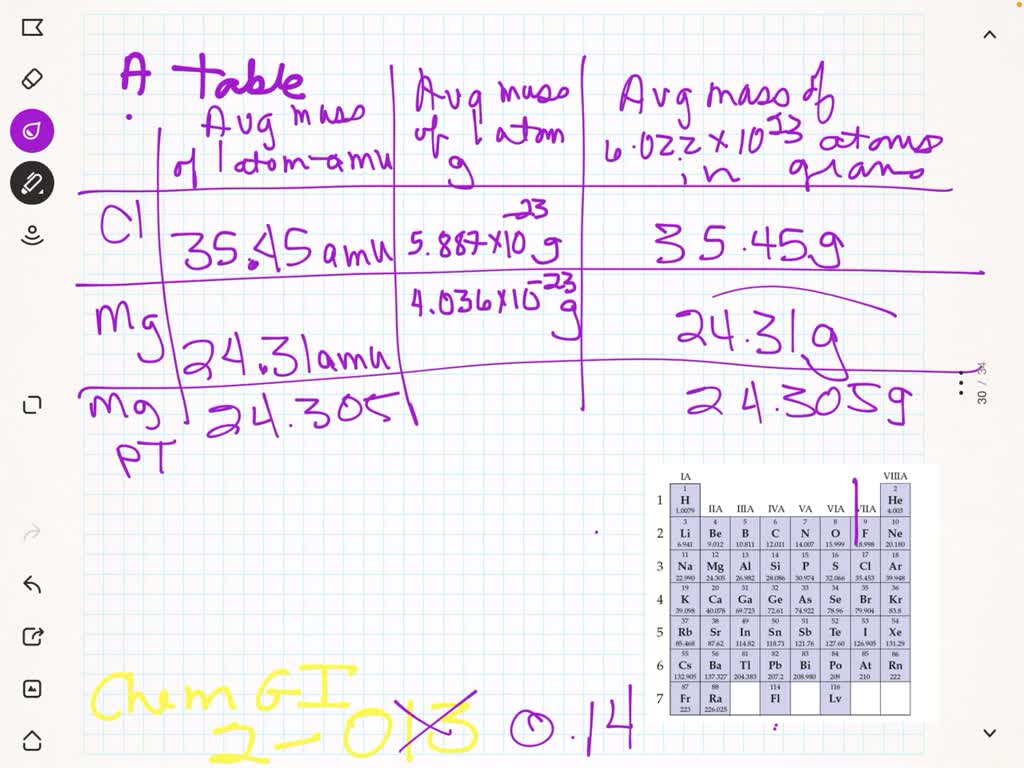 A Table
Avg mass of 1 atom-amu
Avg mass of 1 atom g
Avg mass of 6.022 x 10^23 atoms in grams
Cl 35.45 amu 5.887x10^-23 g 35.45g
Mg 24.31 amu 4.036x10^-23 g 24.31g
Mg PT 24.305 24.305g
30 / 34
IA VIIIA
1 1 H 1.0079 2 He 4.003
IIA IIIA IVA VA VIA VIIA
2 3 Li 6.941 4 Be 9.012 5 B 10.811 6 C 12.011 7 N 14.007 8 O 15.999 9 F 18.998 10 Ne 20.180
3 11 Na 22.990 12 Mg 24.305 13 Al 26.982 14 Si 28.086 15 P 30.974 16 S 32.066 17 Cl 35.453 18 Ar 39.948
4 19 K 39.098 20 Ca 40.078 31 Ga 69.723 32 Ge 72.61 33 As 74.922 34 Se 78.96 35 Br 79.904 36 Kr 83.8
5 37 Rb 85.468 38 Sr 87.62 49 In 114.82 50 Sn 118.71 51 Sb 121.76 52 Te 127.60 53 I 126.905 54 Xe 131.29
6 55 Cs 132.905 56 Ba 137.327 81 Tl 204.383 82 Pb 207.2 83 Bi 208.980 84 Po 209 85 At 210 86 Rn 222
7 87 Fr 223 88 Ra 226.025 114 Fl 116 Lv
Chem GI
2-013 0.14